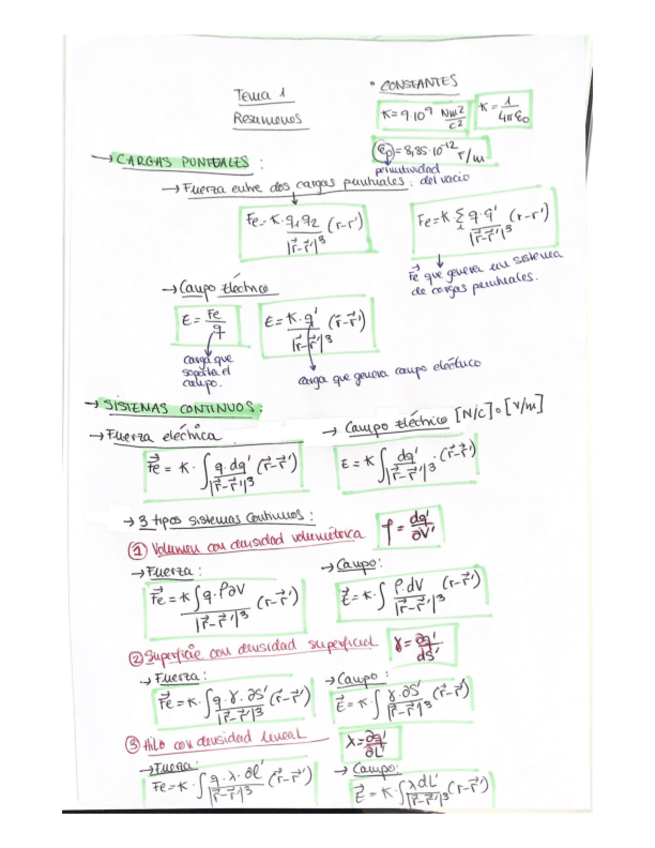 Tema 1
Resumenes
• CONSTANTES
K = 9·10⁹ Nm²/c²
K = 1/4πε₀
ε₀ = 8,85·10⁻¹² F/m
permitividad del vacío
→ CARGAS PUNTUALES :
→ Fuerza entre dos cargas puntuales:
Fe = K·q₁q₂/|r⃗-r⃗'|³ (r-r')
Fe = K·Σᵢ q·q'/|r⃗-r⃗'|³ (r-r')
F⃗e que genera un sistema
de cargas puntuales.
→ Campo Eléctrico
E = Fe/q
E = K·q'/|r⃗-r⃗'|³ (r⃗-r⃗')
carga que
soporta el
campo.
carga que genera campo eléctrico
→ SISTEMAS CONTINUOS:
→ Fuerza eléctrica
→ Campo Eléctrico [N/C] o [V/m]
F⃗e = K·∫ q·dq'/|r⃗-r⃗'|³ (r⃗-r⃗')
E = K ∫ dq'/|r⃗-r⃗'|³ ·(r⃗-r⃗')
→ 3 tipos sistemas continuos :
① Volumen con densidad volumétrica
ρ = dq'/∂V'
→ Fuerza :
→ Campo:
F⃗e = K ∫ q·ρ∂V/|r⃗-r⃗'|³ (r-r⃗')
E⃗ = K·∫ ρ.dV/|r⃗-r⃗'|³ (r-r⃗')
② Superficie con densidad superficial
γ = ∂q'/dS'
→ Fuerza:
→ Campo :
F⃗e = K·∫ q·γ·∂S'/|r⃗-r⃗'|³ (r⃗-r⃗')
E⃗ = K·∫ γ·∂S'/|r⃗-r⃗'|³ (r⃗-r⃗')
③ Hilo con densidad lineal
λ = ∂q'/∂L'
→ Fuerza:
→ Campo:
Fe = K·∫ q·λ·∂l'/|r⃗-r⃗'|³ (r⃗-r⃗')
E⃗ = K·∫ λdL'/|r⃗-r⃗'|³ (r-r⃗')